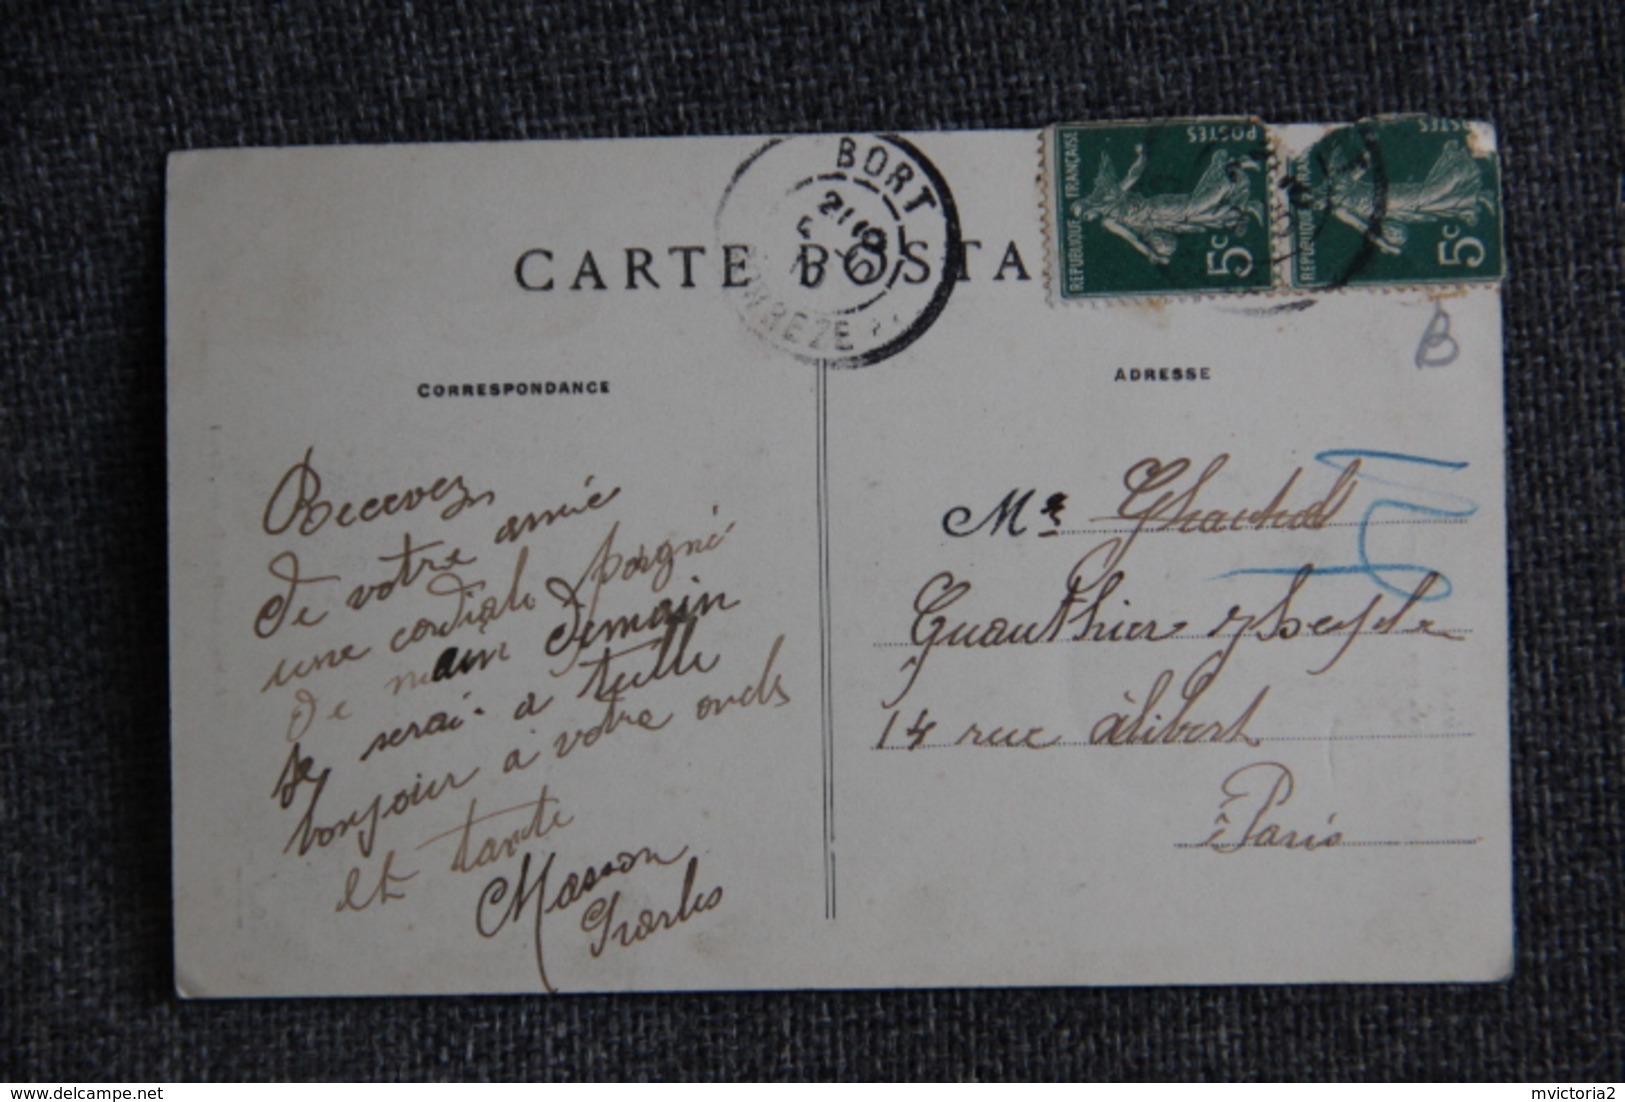 BORT
CORREZE
CARTE POSTA
REPUBLIQUE FRANÇAISE
POSTES
5c
POSTES
5c
B
CORRESPONDANCE
ADRESSE
Recevez
de votre amie
une cordiale poigné
de main Demain
Je serai a tulle
bonjour a votre oncle
et tante
Masson
Charles
Mr
14 rue alibert
Paris
delcampe.net
mvictoria2